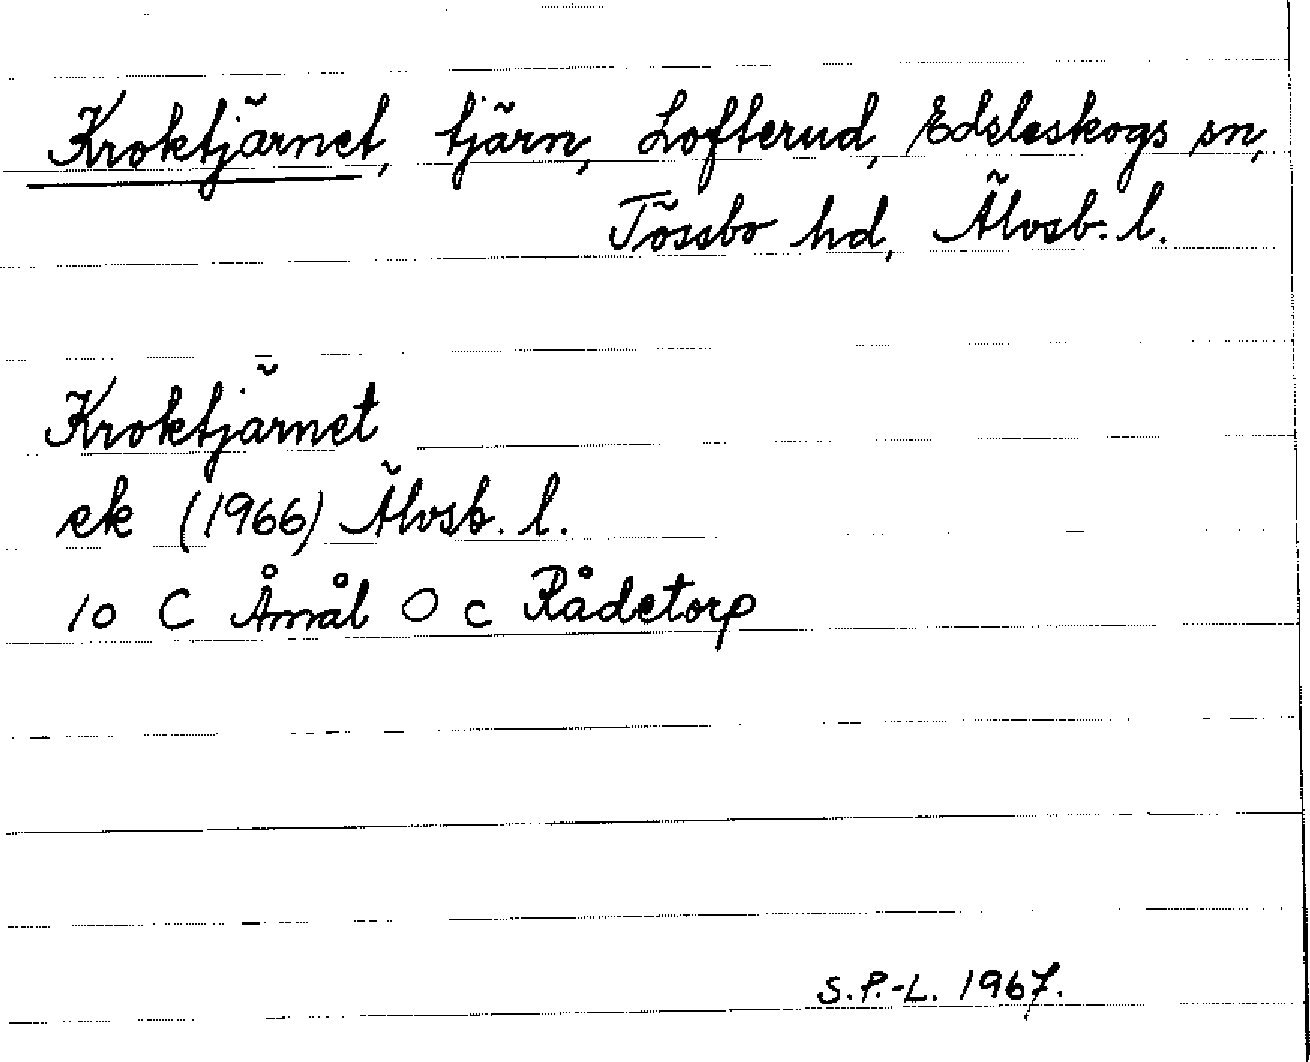 Kroktjärnet, tjärn, Lofterud, Edsleskogs sn,
Tössbo hd, Älvsb. l.
Kroktjärnet
ek (1966) Älvsb. l.
10 C Åmål O c Rådetorp
S.P.-L. 1967.